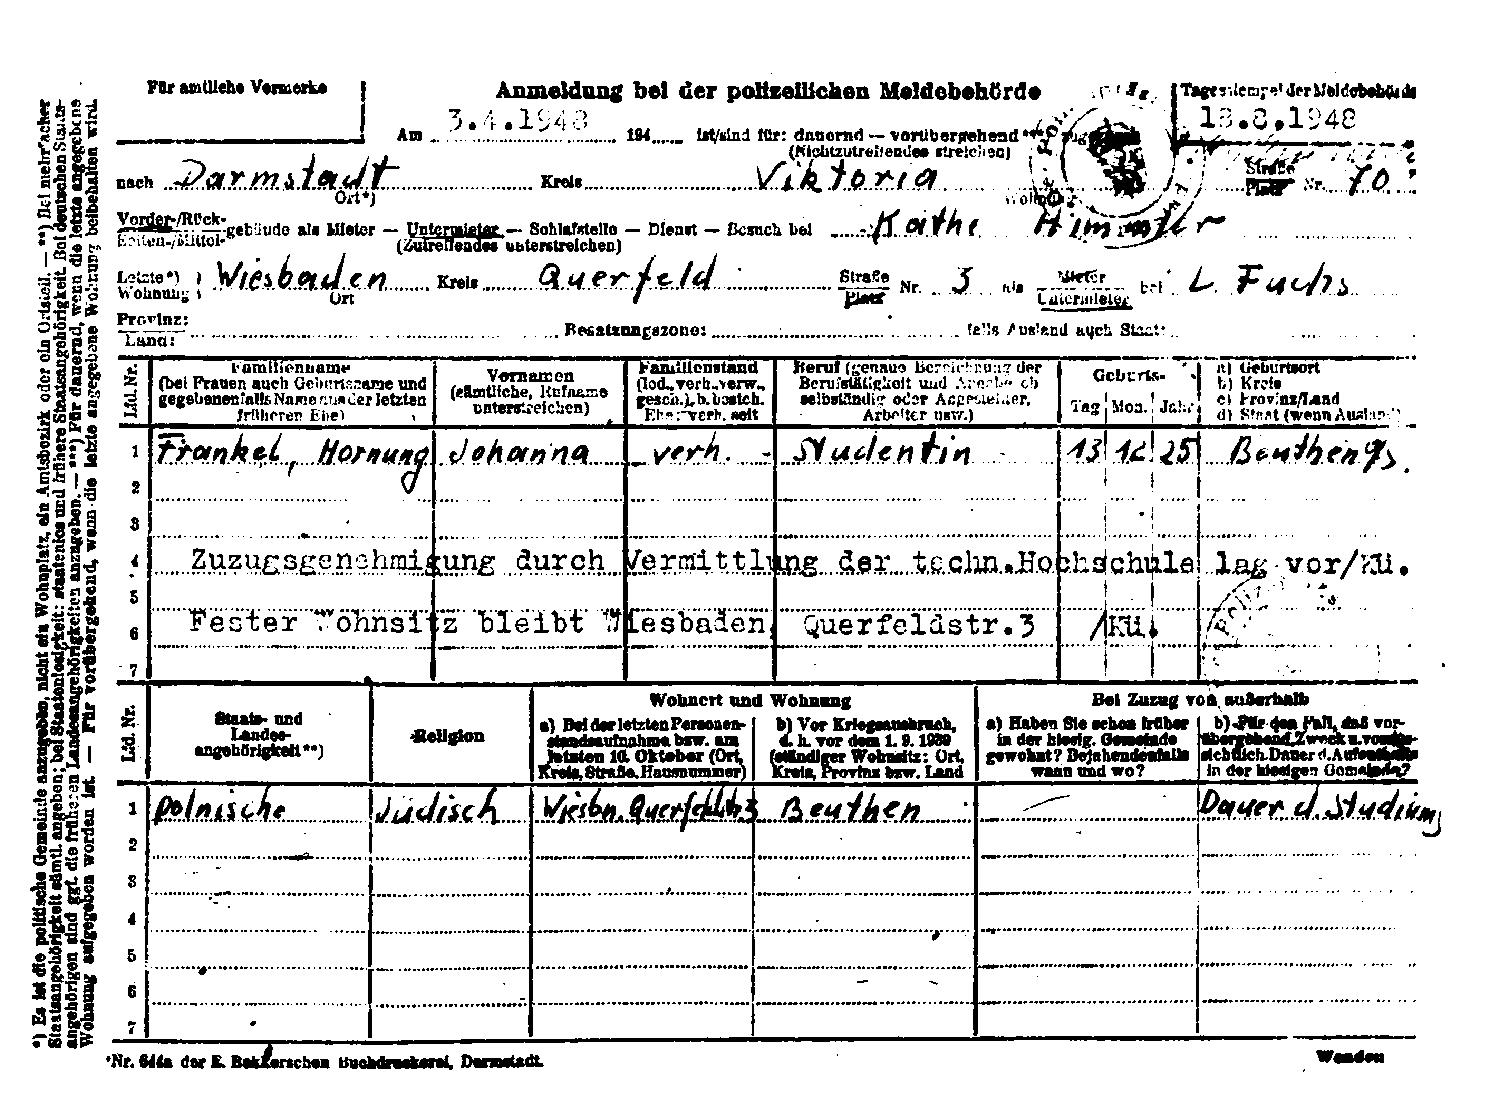 Für amtliche Vermerke
Anmeldung bei der polizeilichen Meldebehörde
Tagesstempel der Meldebehörde
Am 3.4.1948 194 ist/sind für: dauernd — vorübergehend ***)
18.8.1948
(Nichtzutreffendes streichen)
nach Darmstadt Kreis Viktoria Straße Platz Nr. 70
Ort*)
Wohnung
Vorder-/Rück-
Seiten-/Mittel- gebäude als Mieter — Untermieter — Schlafstelle — Dienst — Besuch bei Käthe
(Zutreffendes unterstreichen)
Letzte*) Wohnung: Wiesbaden Kreis Querfeld Straße Platz Nr. 3 als Mieter Untermieter bei L. Fuchs
Ort
Provinz:
Land: Besatzungszone: falls Ausland auch Staat:
Lfd. Nr.
Familienname
(bei Frauen auch Geburtsname und
gegebenenfalls Name aus der letzten
früheren Ehe)
Vornamen
(sämtliche, Rufname
unterstreichen)
Familienstand
(led., verh., verw.,
gesch.), b. besteh.
Ehe: verh. seit
Beruf (genaue Bezeichnung der
Berufstätigkeit und Angabe ob
selbständig oder Angestellter,
Arbeiter usw.)
Geburts-
Tag Mon. Jahr
a) Geburtsort
b) Kreis
c) Provinz/Land
d) Staat (wenn Ausland)
1 Frankel, Hornung Johanna verh. Studentin 13 12 25 Beuthen
2
3
4 Zuzugsgenehmigung durch Vermittlung der techn.Hochschule lag vor/Kü.
5
6 Fester Wohnsitz bleibt Wiesbaden, Querfeldstr.3 /Kü.
7
Lfd. Nr.
Staats- und
Landes-
angehörigkeit**)
Religion
Wohnort und Wohnung
a) Bei der letzten Personen-
standsaufnahme bzw. am
letzten 10. Oktober (Ort,
Kreis, Straße, Hausnummer)
b) Vor Kriegsausbruch,
d. h. vor dem 1. 9. 1939
(ständiger Wohnsitz: Ort,
Kreis, Provinz bzw. Land
Bei Zuzug von außerhalb
a) Haben Sie schon früher
in der hiesig. Gemeinde
gewohnt? Bejahendenfalls
wann und wo?
b) Für den Fall, daß vor-
übergehend, Zweck u. voraus-
sichtlich. Dauer d. Aufenthalts
in der hiesigen Gemeinde?
1 polnische Jüdisch Wiesbn. Querfeldstr 3 Beuthen — Dauer d. Studiums
2
3
4
5
6
7
*Nr. 644a der E. Bekkerschen Buchdruckerei, Darmstadt.
Wenden
*) Es ist die politische Gemeinde anzugeben, nicht ein Wohnplatz, ein Amtsbezirk oder ein Ortsteil. — **) Bei mehrfacher
Staatsangehörigkeit sämtl. angeben; bei Staatenlosigkeit: staatenlos und frühere Staatsangehörigkeit. Bei deutschen Staats-
angehörigen sind ggf. die früheren Landesangehörigkeiten anzugeben. — ***) Für dauernd, wenn die letzte angegebene
Wohnung aufgegeben worden ist. — Für vorübergehend, wenn die letzte angegebene Wohnung beibehalten wird.